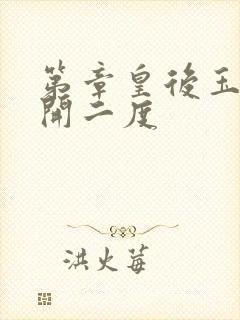 第章皇後玉
開二度
洪火莓